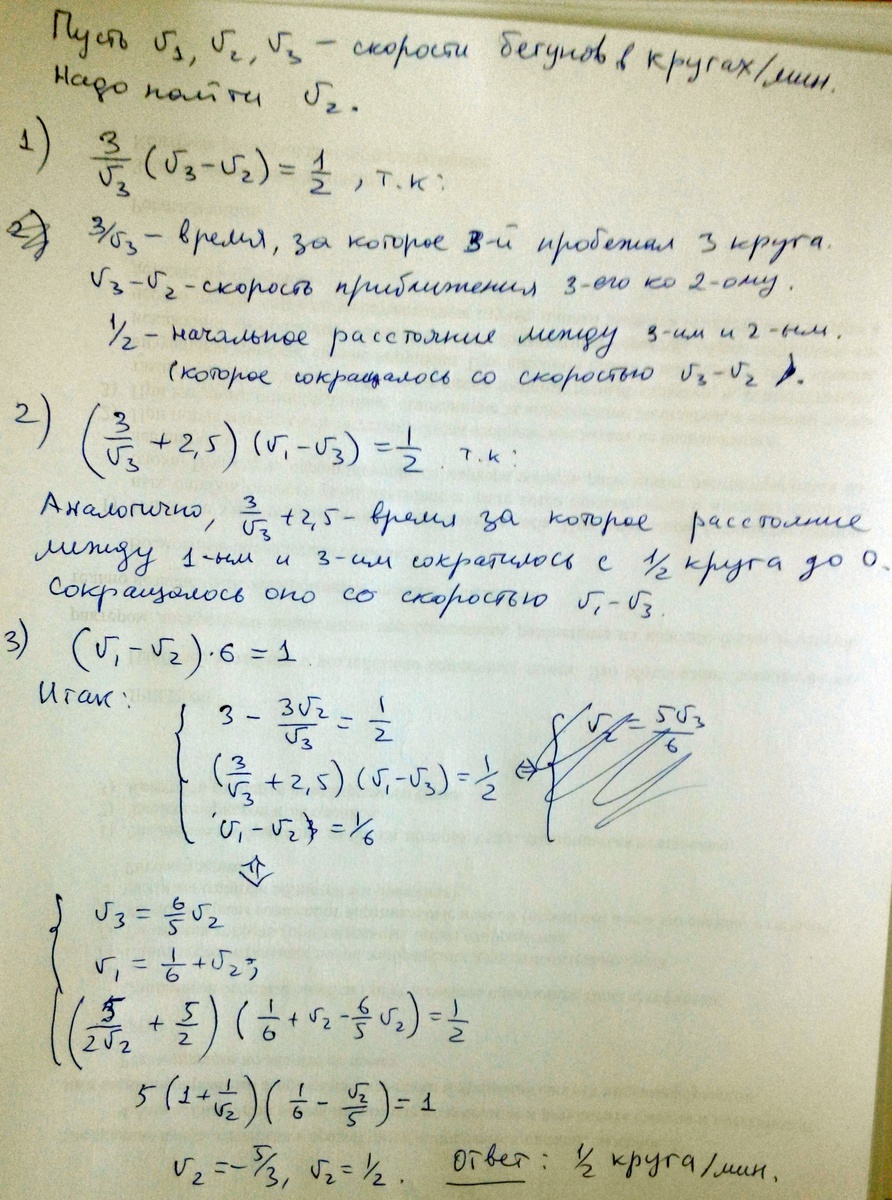 Пусть v₁, v₂, v₃ – скорости бегунов в кругах/мин.
Надо найти v₂.
1) 3/v₃ (v₃ – v₂) = 1/2, т.к:
3/v₃ – время, за которое 3-й пробежал 3 круга.
v₃ – v₂ - скорость приближения 3-его ко 2-ому.
1/2 – начальное расстояние между 3-им и 2-ым.
(которое сокращалось со скоростью v₃ – v₂).
2) (3/v₃ + 2,5) (v₁ – v₃) = 1/2 т.к:
Аналогично, 3/v₃ + 2,5 – время за которое расстояние
между 1-ым и 3-им сократилось с 1/2 круга до 0.
Сокращалось оно со скоростью v₁ – v₃.
3) (v₁ – v₂) · 6 = 1
Итак:
{ 3 – 3v₂/v₃ = 1/2
(3/v₃ + 2,5) (v₁ – v₃) = 1/2 ⇔ { v₂ = 5v₃/6
v₁ – v₂ = 1/6
⇕
{ v₃ = 6/5 v₂
v₁ = 1/6 + v₂;
(5/2v₂ + 5/2) (1/6 + v₂ – 6/5 v₂) = 1/2
5 (1 + 1/v₂) (1/6 – v₂/5) = 1
v₂ = –5/3, v₂ = 1/2. Ответ: 1/2 круга/мин.